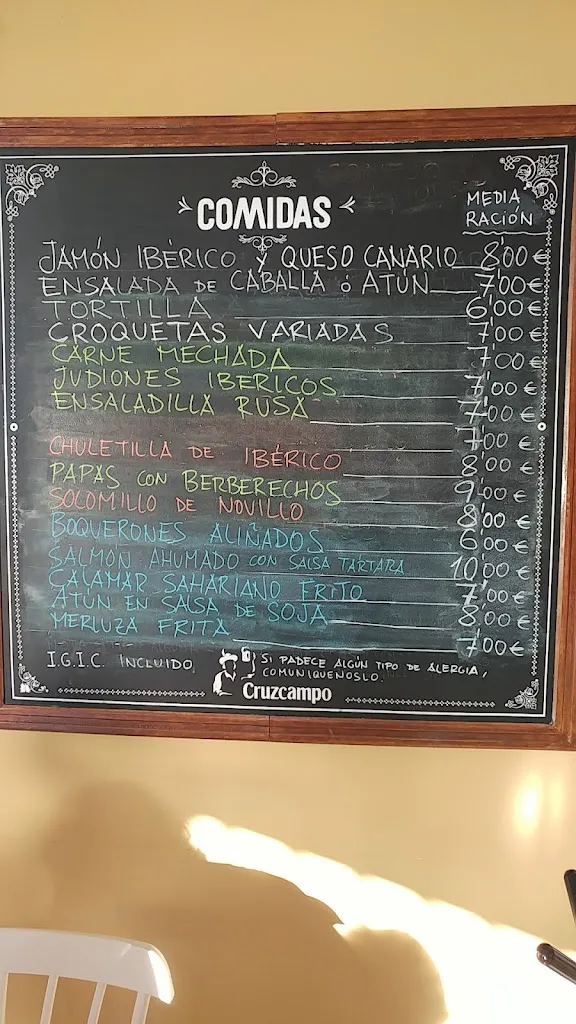 COMIDAS
MEDIA
RACIÓN
JAMÓN IBÉRICO y QUESO CANARIO 8'00 €
ENSALADA DE CABALLA ó ATÚN 7'00 €
TORTILLA 6'00 €
CROQUETAS VARIADAS 7'00 €
CARNE MECHADA 7'00 €
JUDIONES IBERICOS 7'00 €
ENSALADILLA RUSA 7'00 €
7'00 €
CHULETILLA DE IBÉRICO 8'00 €
PAPAS CON BERBERECHOS 9'00 €
SOLOMILLO DE NOVILLO 8'00 €
BOQUERONES ALIÑADOS 6'00 €
SALMÓN AHUMADO CON SALSA TARTARA 10'00 €
CALAMAR SAHARIANO FRITO 7'00 €
ATÚN EN SALSA DE SOJA 8'00 €
MERLUZA FRITA 7'00 €
I.G.I.C. INCLUIDO.
SI PADECE ALGÚN TIPO DE ALERGIA,
COMUNIQUENOSLO.
Cruzcampo